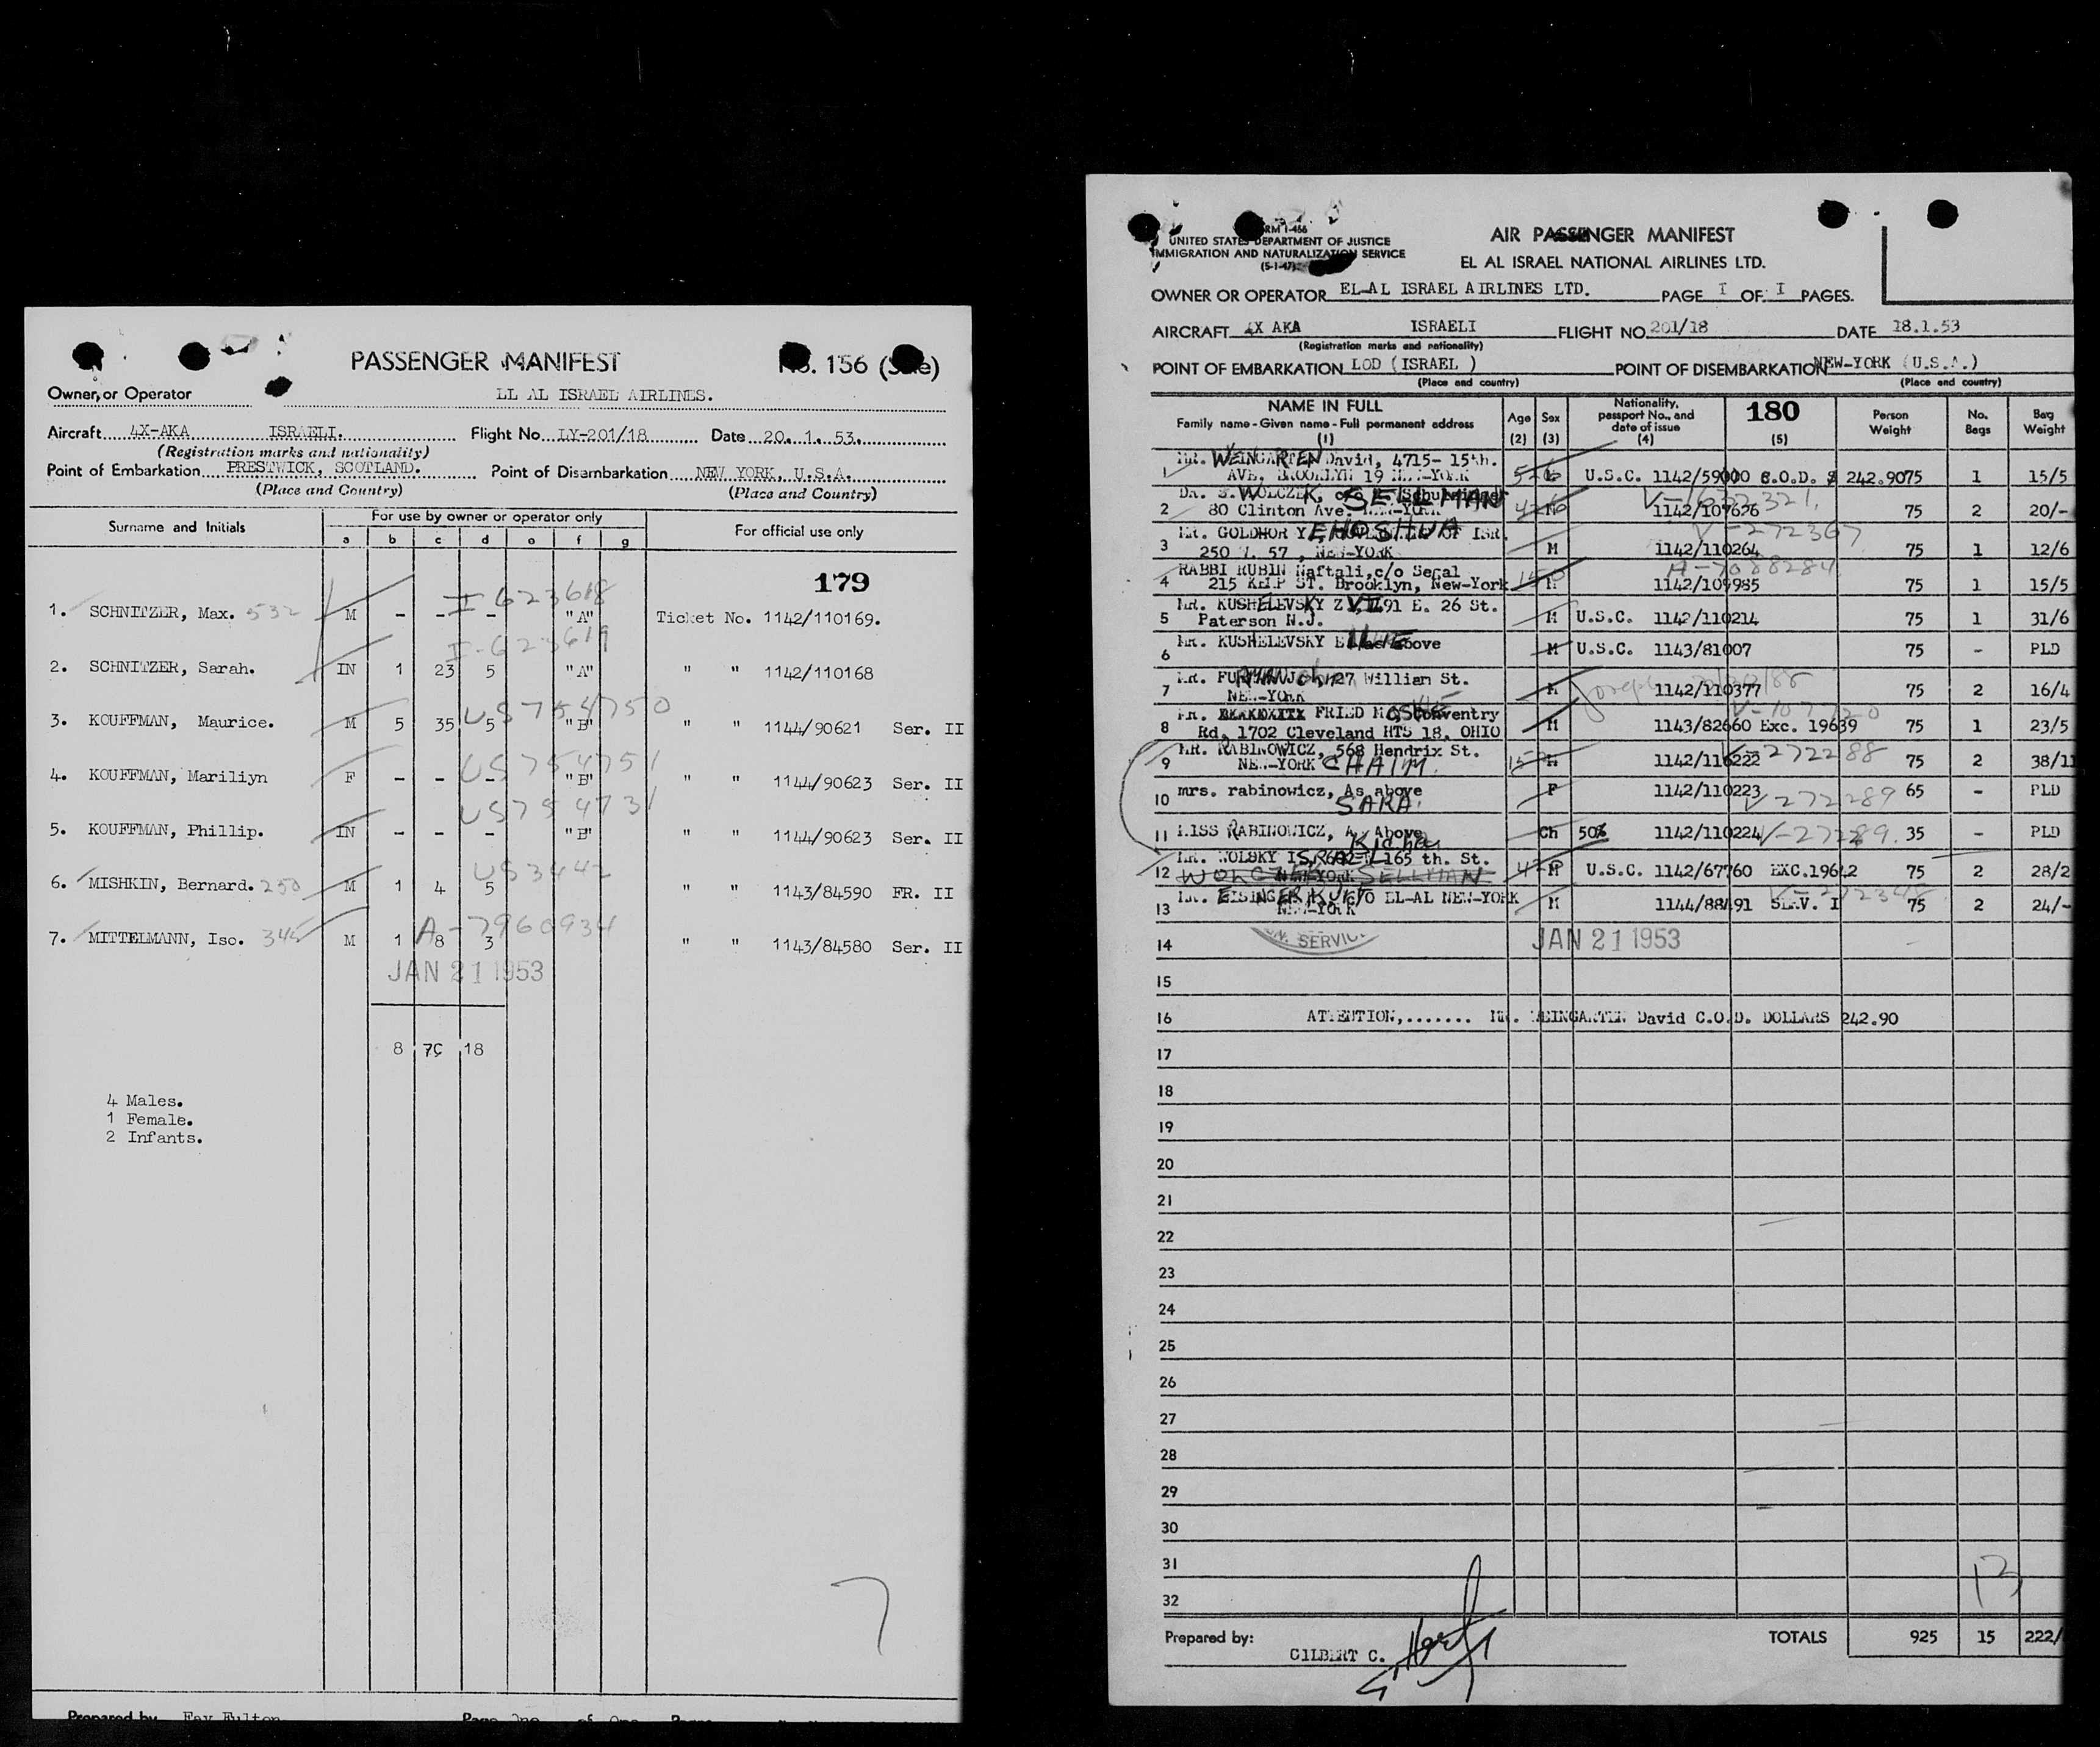 PASSENGER MANIFEST
No. 156
Owner, or Operator LL AL ISRAEL AIRLINES.
Aircraft 4X-AKA ISRAELI. Flight No. LY-201/18 Date 20. 1. 53.
(Registration marks and nationality)
Point of Embarkation PRESTWICK, SCOTLAND. Point of Disembarkation NEW YORK, U.S.A.
(Place and Country) (Place and Country)
Surname and Initials
For use by owner or operator only
For official use only
a b c d e f g
179
I-623618
1. SCHNITZER, Max. 532 M - - - "A" Ticket No. 1142/110169.
I-623619
2. SCHNITZER, Sarah. IN 1 23 5 "A" " " 1142/110168
US754750
3. KOUFFMAN, Maurice. M 5 35 5 "B" " " 1144/90621 Ser. II
US754751
4. KOUFFMAN, Mariliyn F - - - "B" " " 1144/90623 Ser. II
US754731
5. KOUFFMAN, Phillip. IN - - - "B" " " 1144/90623 Ser. II
US3442
6. MISHKIN, Bernard. 250 M 1 4 5 " " 1143/84590 FR. II
A-7960934
7. MITTELMANN, Iso. 345 M 1 8 3 " " 1143/84580 Ser. II
JAN 21 1953
8 18
4 Males.
1 Female.
2 Infants.
7
Prepared by Fay Fulton Page One of One
RM I-466
UNITED STATES DEPARTMENT OF JUSTICE
IMMIGRATION AND NATURALIZATION SERVICE
(5-1-47)
AIR PASSENGER MANIFEST
EL AL ISRAEL NATIONAL AIRLINES LTD.
OWNER OR OPERATOR EL-AL ISRAEL AIRLINES LTD. PAGE I OF I PAGES.
AIRCRAFT 4X AKA ISRAELI FLIGHT NO. 201/18 DATE 18.1.53
(Registration marks and nationality)
POINT OF EMBARKATION LOD (ISRAEL) POINT OF DISEMBARKATION NEW-YORK (U.S.A.)
(Place and country) (Place and country)
NAME IN FULL
Family name - Given name - Full permanent address
(1)
Age
(2)
Sex
(3)
Nationality,
passport No., and
date of issue
(4)
180
(5)
Person
Weight
No.
Bags
Bag
Weight
MR. WEINGARTEN David, 4715- 15th.
1 AVE. BROOKLYN 19 NEW-YORK U.S.C. 1142/59000 C.O.D. $ 242.90 75 1 15/5
DR. S. WOLCZEK, c/o SELLMAN
V-1632321.
2 80 Clinton Ave. NEW-YORK 1142/107626 75 2 20/-
MR. GOLDHOR YEHOSHUA OF ISR.
V-272367
3 250 W. 57, NEW-YORK M 1142/110264 75 1 12/6
RABBI RUBIN Naftali, c/o Segal
A-7088284
4 215 KEEP ST. Brooklyn, New-York M 1142/109985 75 1 15/5
MR. KUSHELEVSKY ZVI 91 E. 26 St.
5 Paterson N.J. M U.S.C. 1142/110214 75 1 31/6
MR. KUSHELEVSKY as above
6 M U.S.C. 1143/81007 75 - PLD
MR. John 27 William St.
Joseph
7 NEW-YORK M 1142/110377 75 2 16/4
MR. FRIED MOSHE Coventry
V-107720
8 Rd, 1702 Cleveland HTS 18. OHIO M 1143/82660 Exc. 19639 75 1 23/5
MR. RABINOWICZ, 568 Hendrix St.
V-272288
9 NEW-YORK CHAIM M 1142/110222 75 2 38/11
10 mrs. rabinowicz, As above F 1142/110223 65 - PLD
SARA. V-272289
11 MISS RABINOWICZ, As Above Ch 50% 1142/110224 35 - PLD
MR. WOLSKY ISRAEL 165 th. St.
12 NEW-YORK SELLMAN M U.S.C. 1142/67760 EXC.19642 75 2 28/2
MR. EISINGER KURT c/o EL-AL NEW-YORK
13 NEW-YORK M 1144/88491 SLAV. I 75 2 24/-
14 SERVICE JAN 21 1953
15
16 ATTENTION,....... MR. WEINGARTEN David C.O.D. DOLLARS 242.90
17
18
19
20
21
22
23
24
25
26
27
28
29
30
31
13
32
Prepared by: GILBERT C. TOTALS 925 15 222/